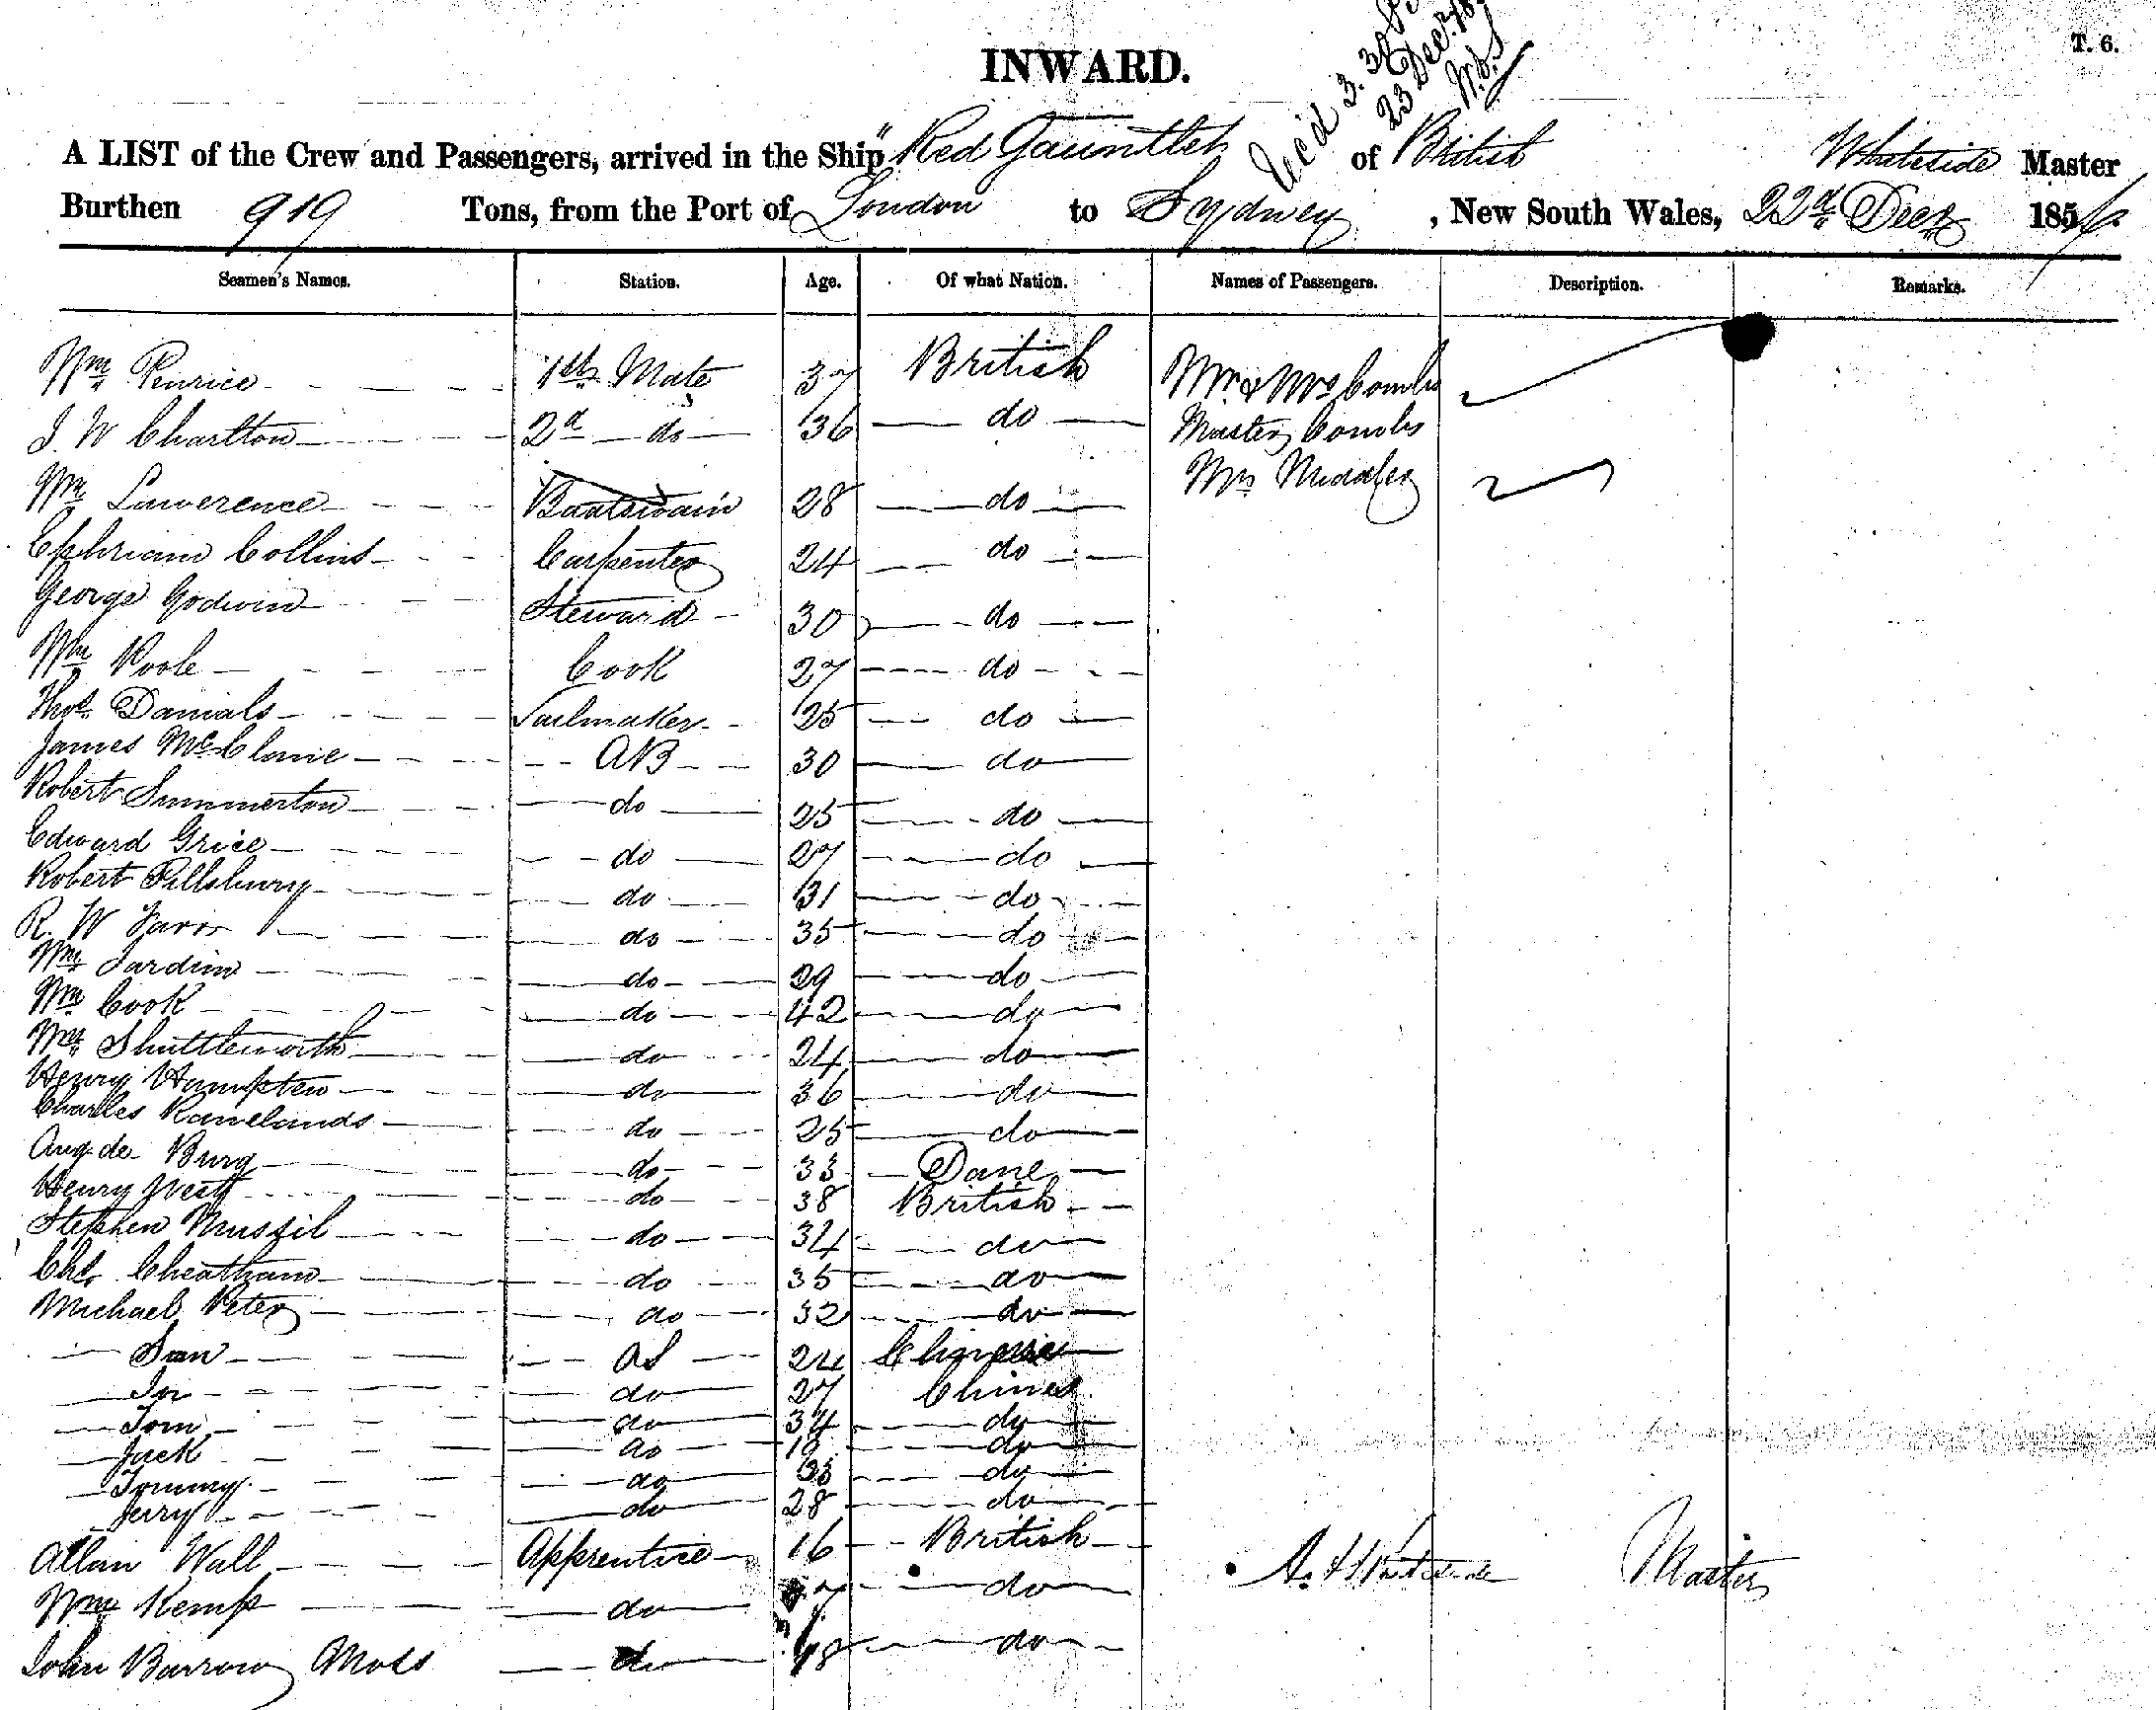 T. 6.
INWARD.
Rec'd 3. 30
23 Decr
A LIST of the Crew and Passengers, arrived in the Ship "Red Gauntlet of British Whiteside Master
Burthen 919 Tons, from the Port of London to Sydney, New South Wales, 22d Decr 185
Seamen's Names. Station. Age. Of what Nation. Names of Passengers. Description. Remarks.
Wm Penrice 1st Mate 37 British Mr & Mrs Combs
J. W Charlton 2d do 36 do Master Combs
Wm Lawerence Boatswain 28 do Mrs
Ephriam Collins Carpenter 24 do
George Godwin Steward 30 do
Wm Poole Cook 27 do
Thos. Danials Sailmaker 25 do
James McClane AB 30 do
Robert Summerton do 25 do
Edward Grice do 27 do
Robert Pillsbury do 31 do
R. W do 35 do
Wm Jardin do 29 do
Wm Cook do 42 do
Shuttleworth do 24 do
Henry Hampton do 36 do
Charles Rawelands do 25 do
Aug de Burg do 33 Dane
Henry West do 38 British
Stephen Mussil do 34 do
Chs. Cheatham do 35 do
Michael Peter do 32 do
San AS 24 Chinese
do 27 Chines
Tom do 34 do
Jack do 19 do
Tommy do do
Jerry do 28 do
Allan Wall Apprentice 16 British
Wm Kemp do do
A. Whiteside Master
John Barrow Moss do 18 do